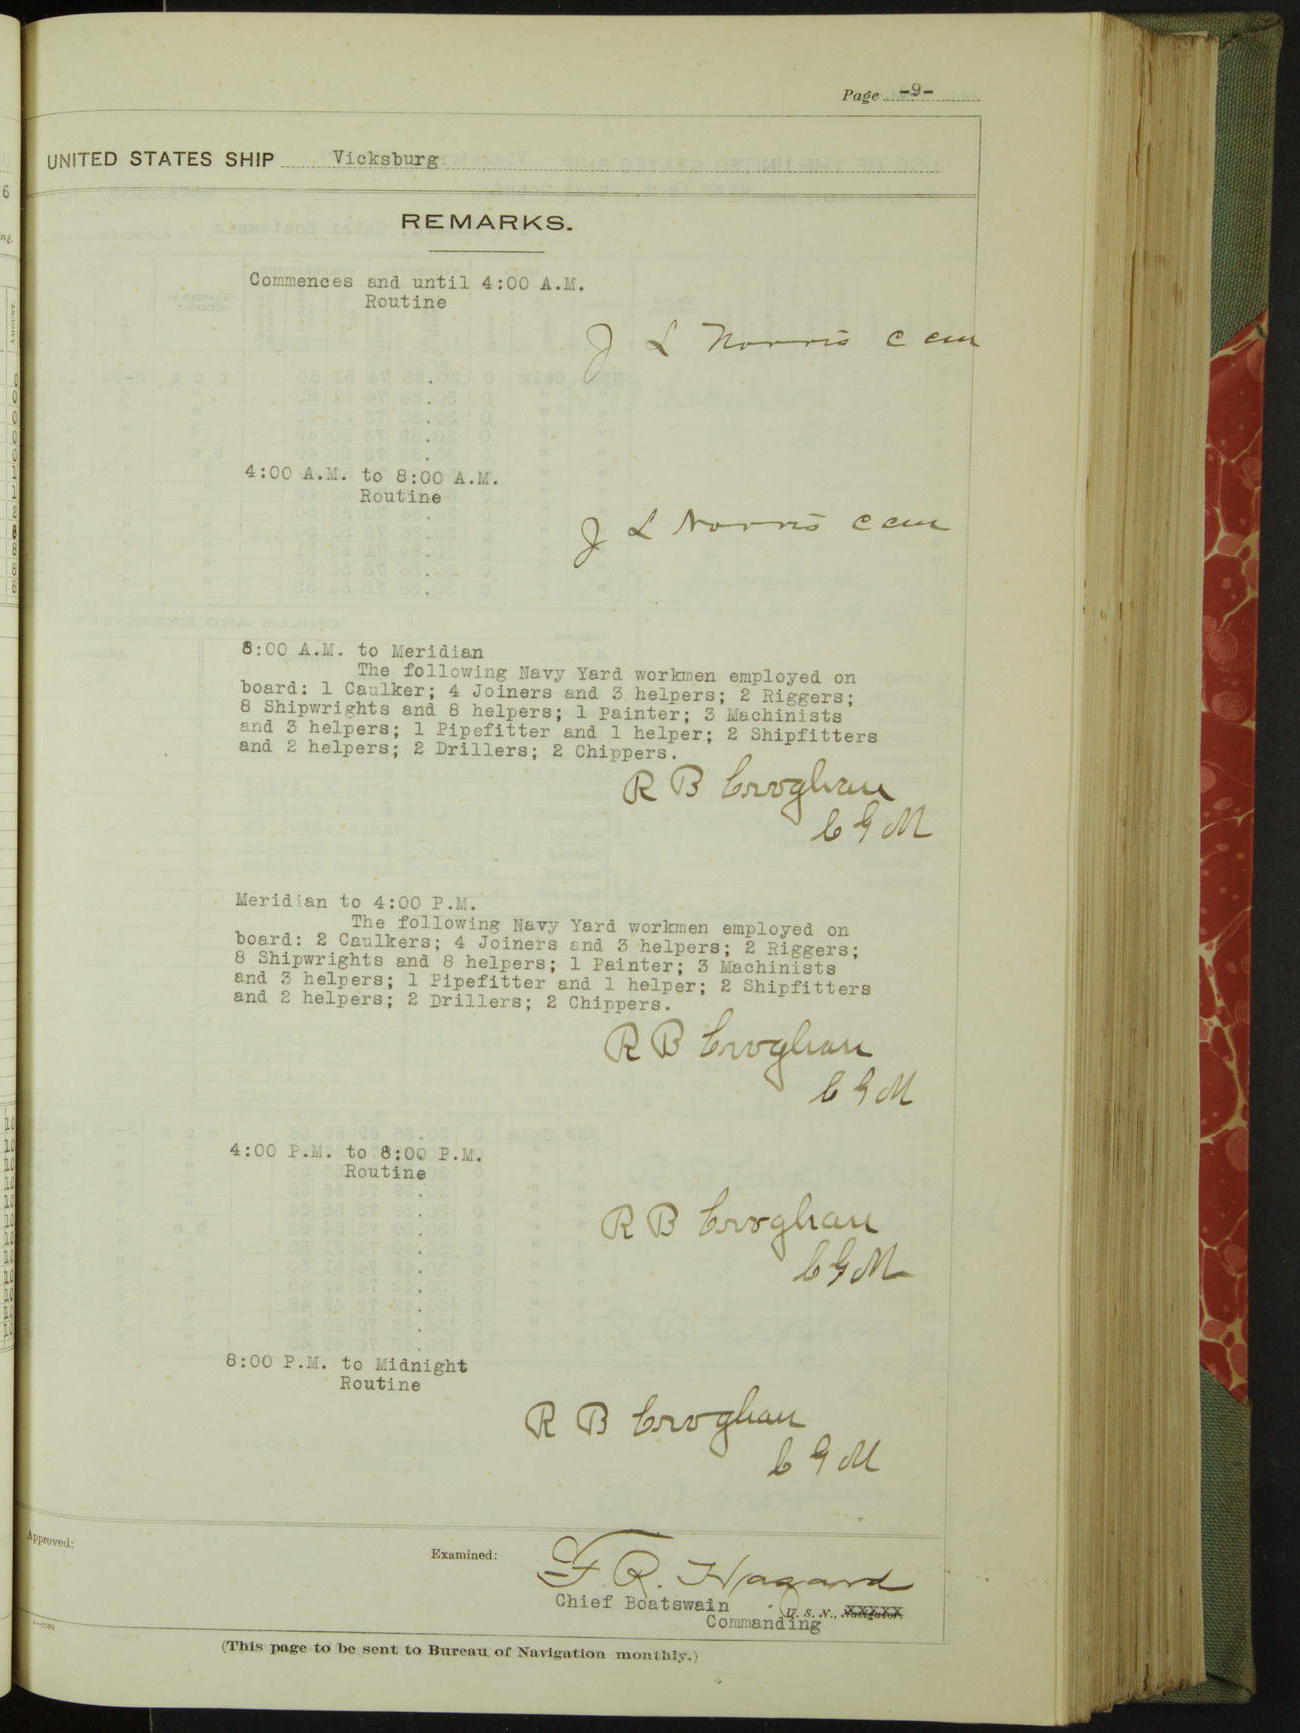 Page -9-
UNITED STATES SHIP Vicksburg
REMARKS.
Commences and until 4:00 A.M.
Routine
J L Norris C CM
4:00 A.M. to 8:00 A.M.
Routine
J L Norris C CM
8:00 A.M. to Meridian
The following Navy Yard workmen employed on
board: 1 Caulker; 4 Joiners and 3 helpers; 2 Riggers;
8 Shipwrights and 8 helpers; 1 Painter; 3 Machinists
and 3 helpers; 1 Pipefitter and 1 helper; 2 Shipfitters
and 2 helpers; 2 Drillers; 2 Chippers.
R B Croghan
C G M
Meridian to 4:00 P.M.
The following Navy Yard workmen employed on
board: 2 Caulkers; 4 Joiners and 3 helpers; 2 Riggers;
8 Shipwrights and 8 helpers; 1 Painter; 3 Machinists
and 3 helpers; 1 Pipefitter and 1 helper; 2 Shipfitters
and 2 helpers; 2 Drillers; 2 Chippers.
R B Croghan
C G M
4:00 P.M. to 8:00 P.M.
Routine
R B Croghan
C G M
8:00 P.M. to Midnight
Routine
R B Croghan
C G M
Approved:
Examined:
F. R. Hazard
Chief Boatswain U. S. N., Navigator.
Commanding
(This page to be sent to Bureau of Navigation monthly.)